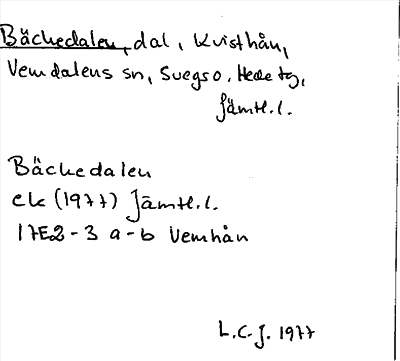 Bäckedalen, dal, Kvisthån,
Vemdalens sn, Svegs o. Hede tg,
Jämtl.l.
Bäckedalen
ek (1977) Jämtl.l.
17E2-3 a-b Vemhån
L.C.J. 1977